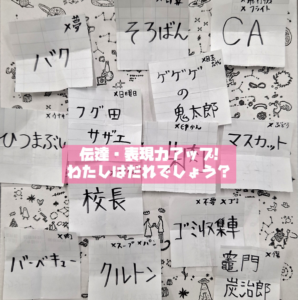 ×夢
バク
そろばん
×フライト
CA
×日曜日
フグ田
サザエ
ゲゲゲ
の
鬼太郎
ひつまぶし
マスカット
伝達・表現力アップ!
わたしはだれでしょう？
校長
×ゴミ
ゴミ収集車
バーベキュー
×スープ
クルトン
竈門
炭治郎